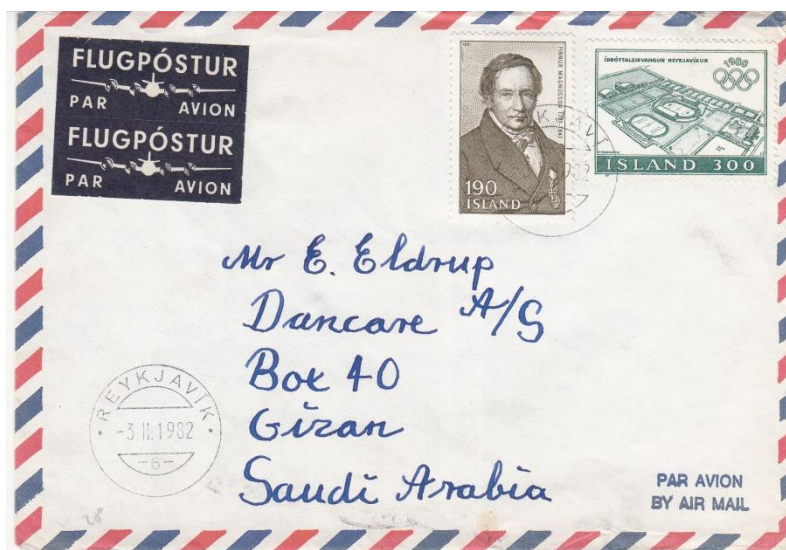 FLUGPÓSTUR
PAR AVION
FLUGPÓSTUR
PAR AVION
1981
FINNUR MAGNÚSSON
190
ÍSLAND
ÍÞRÓTTALEIKVANGUR REYKJAVÍKUR
1980
ÍSLAND 300
Mr E. Eldrup
Dancare A/S
Box 40
Gizan
Saudi Arabia
REYKJAVÍK
-3.II.1982
-6-
PAR AVION
BY AIR MAIL
28